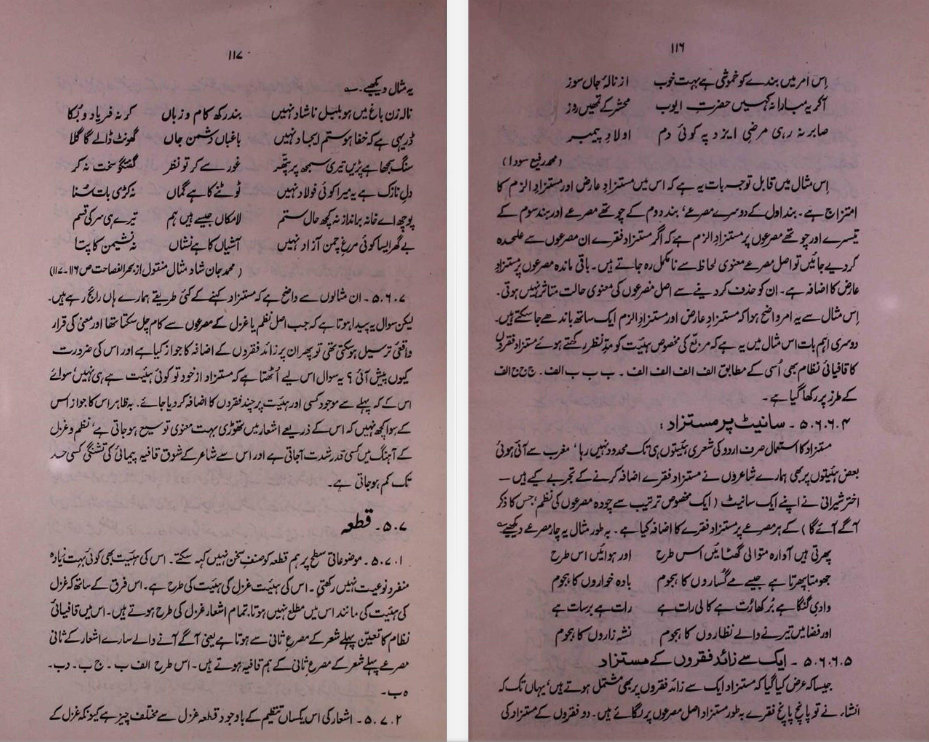 ۱۱۶
اِس امر میں بندے کو خموشی ہے بہت خوب از نالۂ جاں سوز
آگریہ مبادا نہ کہیں حضرت ایوب محشر کے تھیں روز
صابر نہ رہی مرضیِ ایزد پہ کوئی دم اولادِ پیمبر
(محمد رفیع سودا)
اِس مثال میں قابلِ توجہ بات یہ ہے کہ اس میں مستزادِ عارض اور مستزادِ الزم کا
امتزاج ہے۔ بند اول کے دوسرے مصرعے، بند دوم کے چوتھے مصرعے اور بند سوم کے
تیسرے اور چوتھے مصرعوں پر مستزاد الزم ہے کہ اگر مستزاد فقرے ان مصرعوں سے علیحدہ
کر دیے جائیں تو اصل مصرعے معنوی لحاظ سے نامکمل رہ جاتے ہیں۔ باقی ماندہ مصرعوں پر مستزادِ
عارض کا اضافہ ہے۔ ان کو حذف کر دینے سے اصل مصرعوں کی معنوی حالت متاثر نہیں ہوتی۔
اِس مثال سے یہ امر واضح ہوا کہ مستزادِ عارض اور مستزادِ الزم ایک ساتھ باندھے جا سکتے ہیں۔
دوسری اہم بات اس مثال میں یہ ہے کہ مربع کی مخصوص ہیئت کو مدِّنظر رکھتے ہوئے مستزاد فقروں
کا قافیائی نظام بھی اُسی کے مطابق الف الف الف الف ۔ ب ب ب الف ۔ ج ج ج الف
کے طرز پر رکھا گیا ہے۔
۵.۶.۶.۴ ۔ سانیٹ پر مستزاد :
مستزاد کا استعمال صرف اردو کی شعری ہیئتوں ہی تک محدود نہیں رہا، مغرب سے آئی ہوئی
بعض ہیئتوں پر بھی ہمارے شاعروں نے مستزاد فقرے اضافہ کرنے کے تجربے کیے ہیں —
اختر شیرانی نے اپنے ایک سانیٹ (ایک مخصوص ترتیب سے چودہ مصرعوں کی نظم، جس کا ذکر
آگے آئے گا) کے ہر مصرعے پر مستزاد فقرے کا اضافہ کیا ہے ۔ بہ طورِ مثال یہ چار مصرعے دیکھیے
پھرتی ہیں آوارہ متوالی گھٹائیں اس طرح اور ہوائیں اس طرح
جھومتا پھرتا ہے جیسے مے گساروں کا ہجوم بادہ خواروں کا ہجوم
وادیِ گنگا ہے برکھا رُت ہے کالی رات ہے رات ہے برسات ہے
اور فضا میں تیرنے والے نظاروں کا ہجوم نشہ زاروں کا ہجوم
۵.۶.۶.۵ ۔ ایک سے زائد فقروں کے مستزاد
جیسا کہ عرض کیا گیا کہ مستزاد ایک سے زائد فقروں پر بھی مشتمل ہوتے ہیں، یہاں تک کہ
انشاء نے تو پانچ پانچ فقرے بہ طورِ مستزاد اصل مصرعوں پر لگائے ہیں۔ دو فقروں کے مستزاد کی
۱۱۷
یہ مثال دیکھیے ۔
نالہ زن باغ میں ہو بلبلِ ناشاد نہیں بند رکھ کام و زباں کر نہ فریاد و بُکا
ڈر یہی ہے کہ خفا ہو ستم ایجاد نہیں باغباں دشمنِ جاں گھونٹ ڈالے گا گلا
سنگ سمجھا ہے پڑیں تیری سمجھ پر پتھر غور سے کر تو نظر گفتگو سخت نہ کر
دلِ نازک ہے یہ میرا کوئی فولاد نہیں ٹوٹنے کا ہے گماں نہ کڑی بات سُنا
پوچھ اے خانہ برانداز نہ کچھ حالِ ستم لامکاں جیسے ہیں ہم تیرے ہی سر کی قسم
بے گھر ایسا کوئی مرغِ چمن آزاد نہیں آشیاں کا ہے نشاں نہ نشیمن کا پتا
(محمد جان شاد مثال منقول از بحر الفصاحت ص ۱۱۶-۱۱۷)
۵.۶.۷ ۔ ان مثالوں سے واضح ہے کہ مستزاد کہنے کے کئی طریقے ہمارے ہاں رائج رہے ہیں۔
لیکن سوال یہ پیدا ہوتا ہے کہ جب اصل نظم یا غزل کے مصرعوں سے کام چل سکتا تھا اور معنی کی قرار
واقعی ترسیل ہو سکتی تھی تو پھر ان پر زائد فقروں کے اضافہ کا جواز کیا ہے اور اس کی ضرورت
کیوں پیش آئی ؟ یہ سوال اس لیے اُٹھتا ہے کہ مستزاد از خود تو کوئی ہیئت ہے ہی نہیں، سوائے
اس کے کہ پہلے سے موجود کسی اور ہیئت پر چند فقروں کا اضافہ کر دیا جائے۔ بظاہر اس کا جواز اس
کے سوا کچھ نہیں کہ اس کے ذریعے اشعار میں تھوڑی بہت معنوی توسیع ہو جاتی ہے، نظم و غزل
کے آہنگ میں کسی قدر شدت آ جاتی ہے اور اس سے شاعر کے شوقِ قافیہ پیمائی کی تشنگی کسی حد
تک کم ہو جاتی ہے۔
۵.۷ ۔ قطعہ
۵.۷.۱ ۔ موضوعاتی سطح پر ہم قطعہ کو صنفِ سخن نہیں کہہ سکتے ۔ اس کی ہیئت بھی کوئی بہت زیادہ
منفرد نوعیت نہیں رکھتی ۔ اس کی ہیئت غزل کی ہیئت کی طرح ہے۔ اس فرق کے ساتھ کہ غزل
کی ہیئت کی مانند اس میں مطلع نہیں ہوتا، تمام اشعار غزل کی طرح ہوتے ہیں۔ اس میں قافیائی
نظام کا تعین پہلے شعر کے مصرعِ ثانی سے ہوتا ہے یعنی آگے آنے والے سارے اشعار کے ثانی
مصرعے پہلے شعر کے مصرعِ ثانی کے ہم قافیہ ہوتے ہیں۔ اس طرح الف ب ۔ ج ب ۔ د ب ۔
ہ ب ۔
۵.۷.۲ ۔ اشعار کی اس یکساں تنظیم کے باوجود قطعہ غزل سے مختلف چیز ہے کیونکہ غزل کے